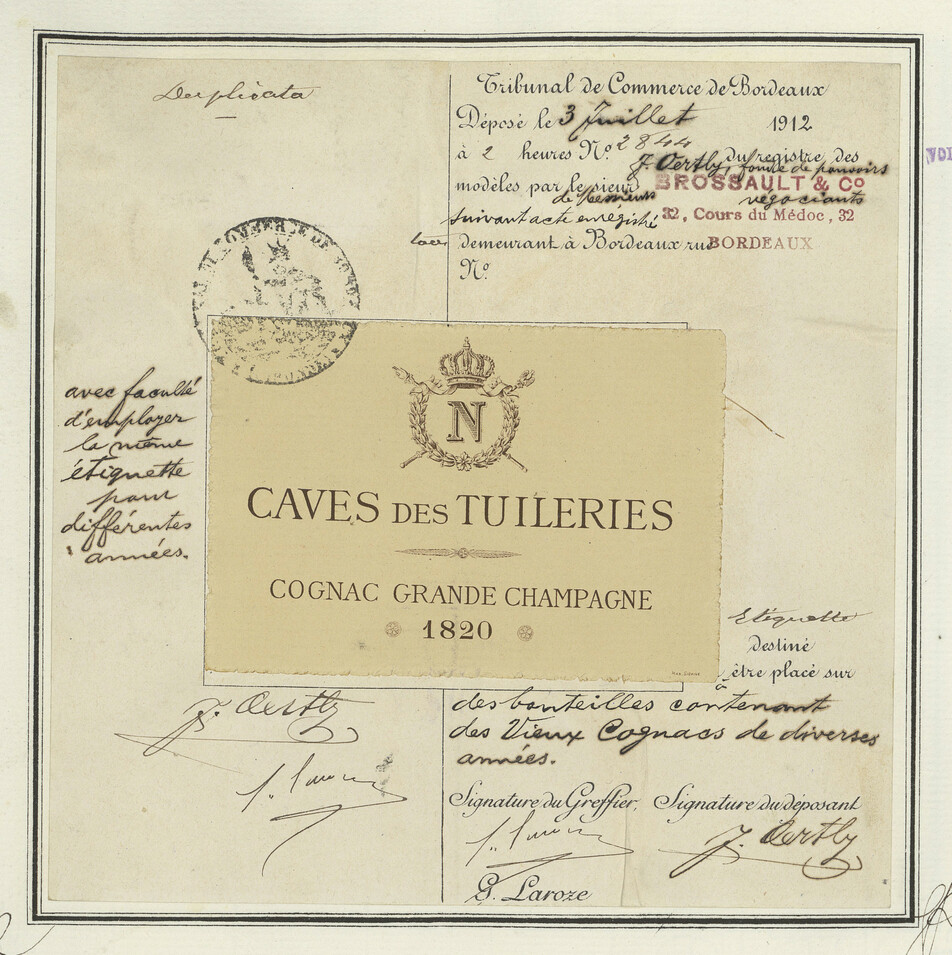 Duplicata
Tribunal de Commerce de Bordeaux
Déposé le 3 Juillet 1912
à 2 heures N° 2844 du registre des
modèles par le sieur J. Oertly, fondé de pouvoirs
de Messieurs BROSSAULT & Co négociants
suivant acte enregistré 32, Cours du Médoc, 32
demeurant à Bordeaux rue BORDEAUX
N°
avec faculté
d'employer
la même
étiquette
pour
différentes
années.
N
CAVES DES TUILERIES
COGNAC GRANDE CHAMPAGNE
1820
Etiquette
destiné
à être placé sur
des bouteilles contenant
des Vieux Cognacs de diverses
années.
J. Oertly
Signature du Greffier, Signature du déposant
J. Oertly
G. Laroze